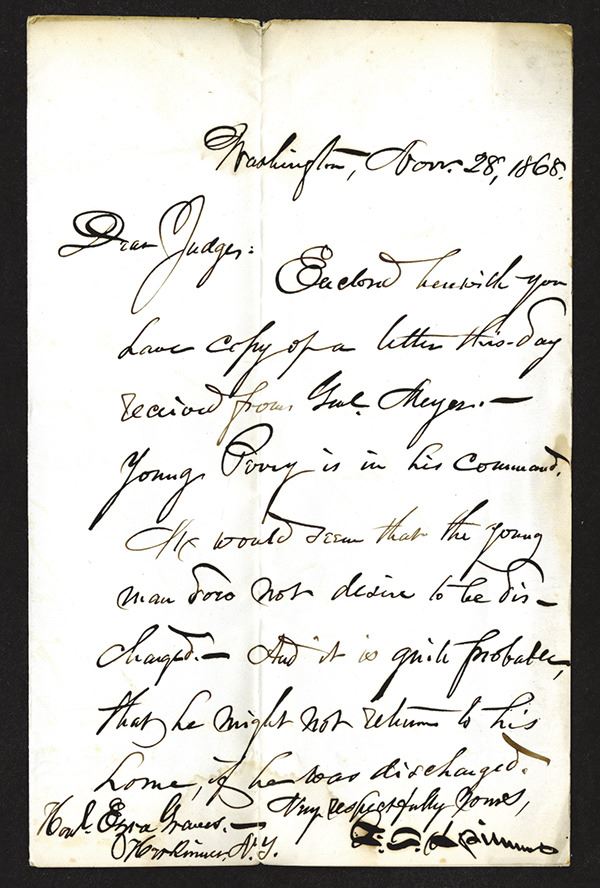 Washington, Nov. 28, 1868.
Dear Judge:
Enclosed herewith you
have copy of a letter this-day
received from Genl. Meyer.—
Young Povey is in his command.
It would seem that the young
man does not desire to be dis-
charged.— And it is quite probable,
that he might not return to his
home, if he was discharged.
Very respectfully Yours,
Honl. Ezra Graves.—
Herkimer, N.Y.